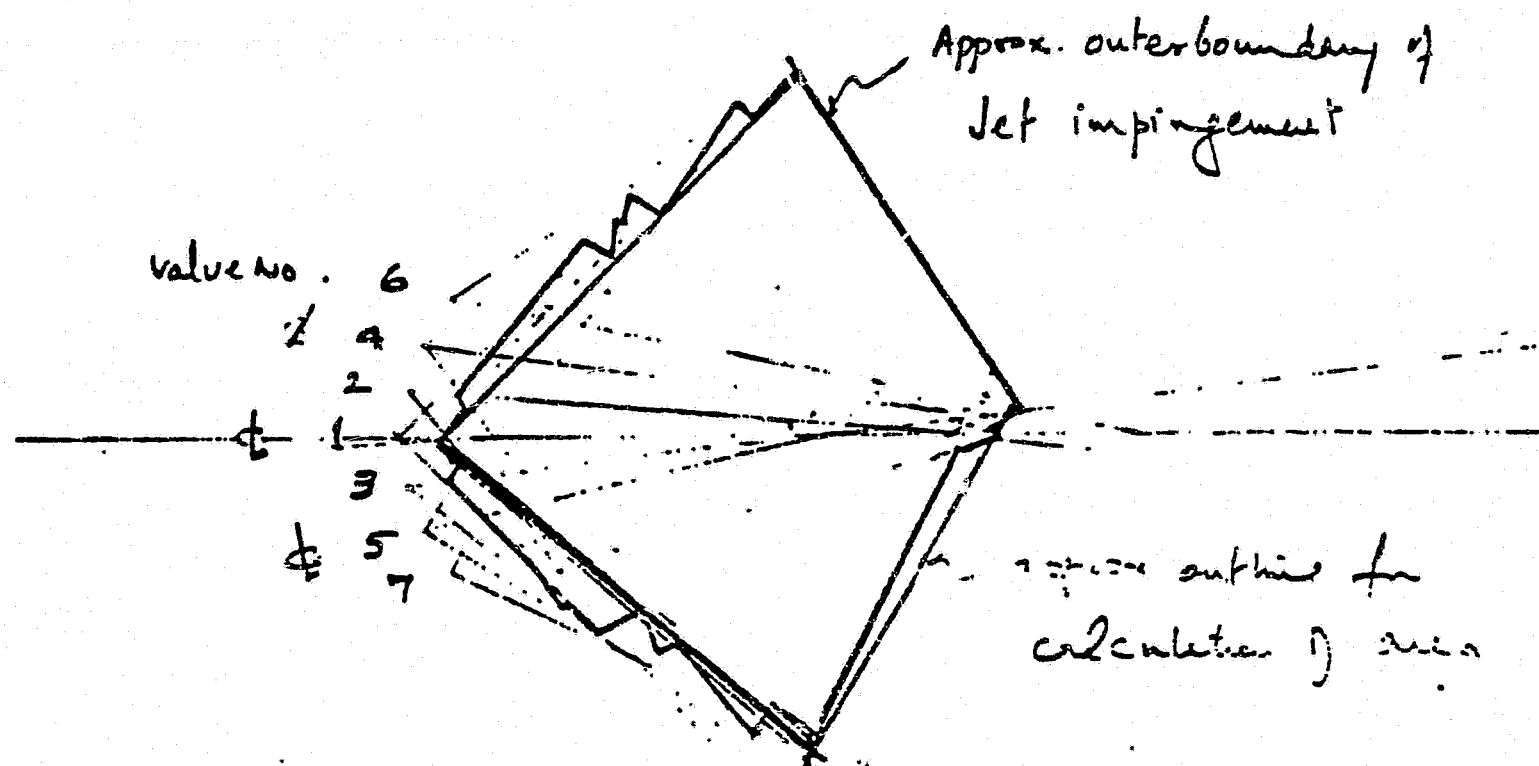 Approx. outerboundary of
Jet impingement
Valve No. 6
4
2
℄ 1
3
℄ 5
7
outline for
calculation of